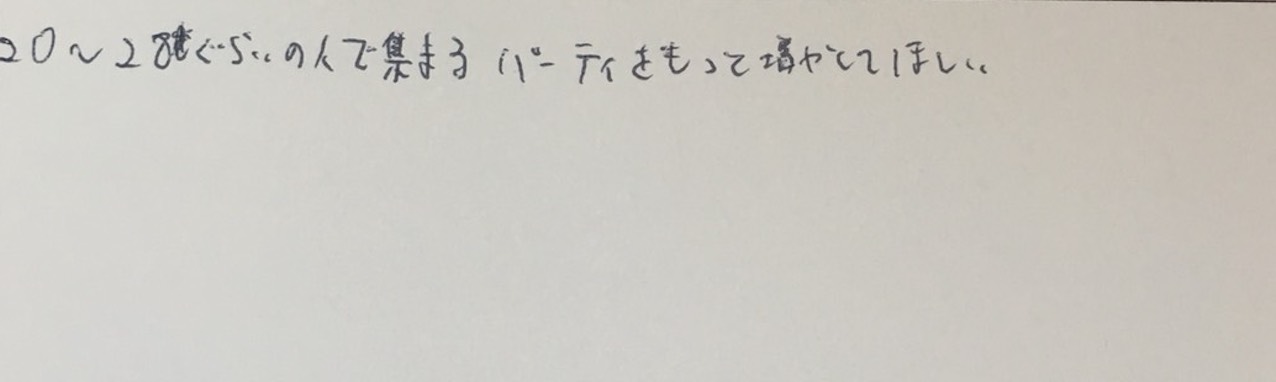 20〜28才ぐらいの人で集まるパーティをもって増やしてほしい